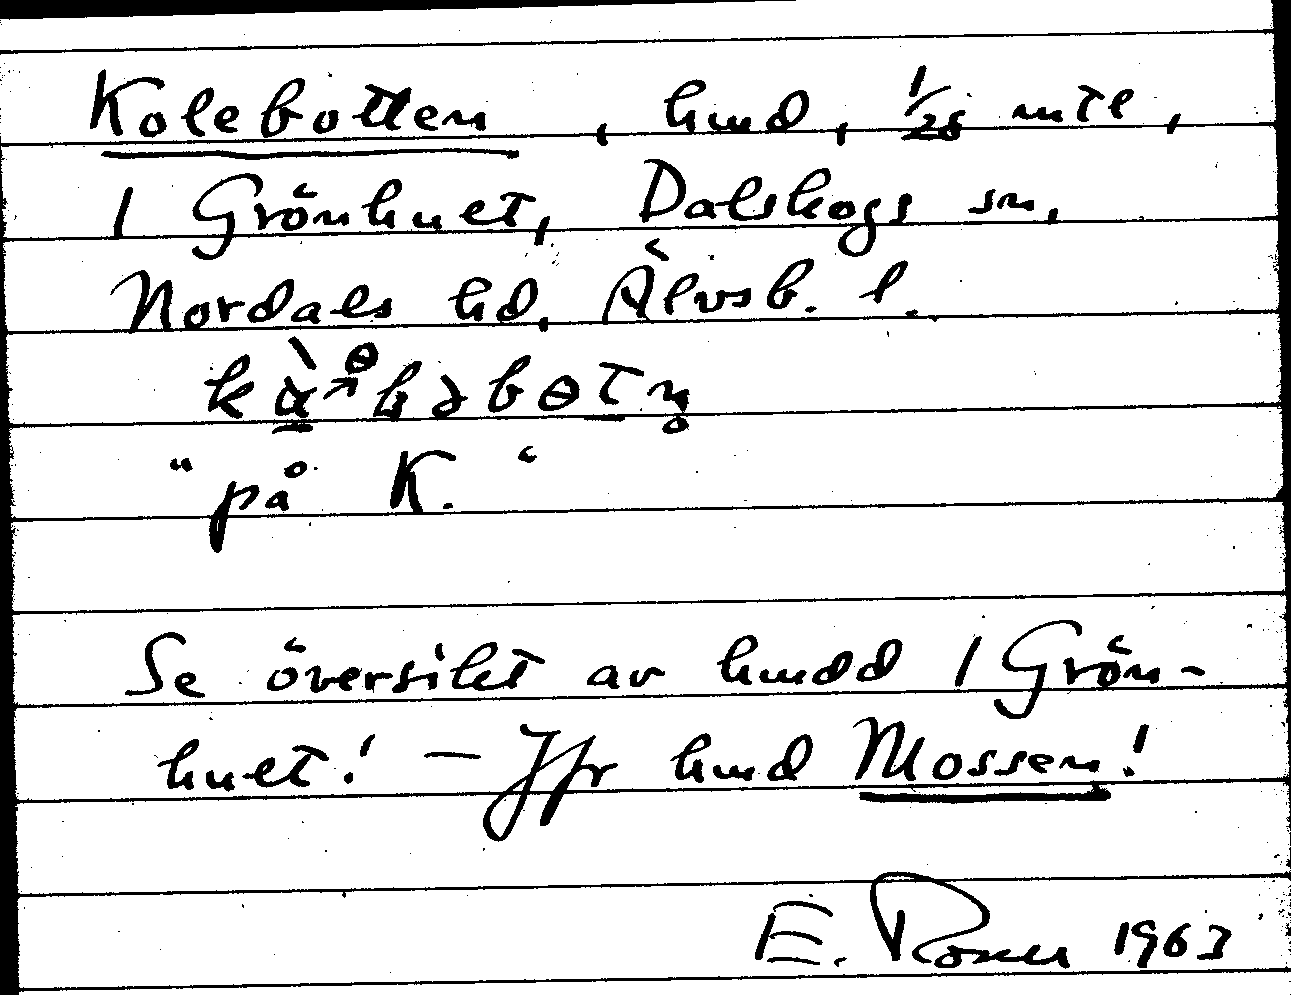 Kolebotten, hmd, 1/28 mtl,
i Grönhult, Dalskogs sn,
Nordals hd, Älvsb. l.
"på K."
Se översikt av hmdd i Grön-
hult! – Jfr hmd Mossen!
E. 1963